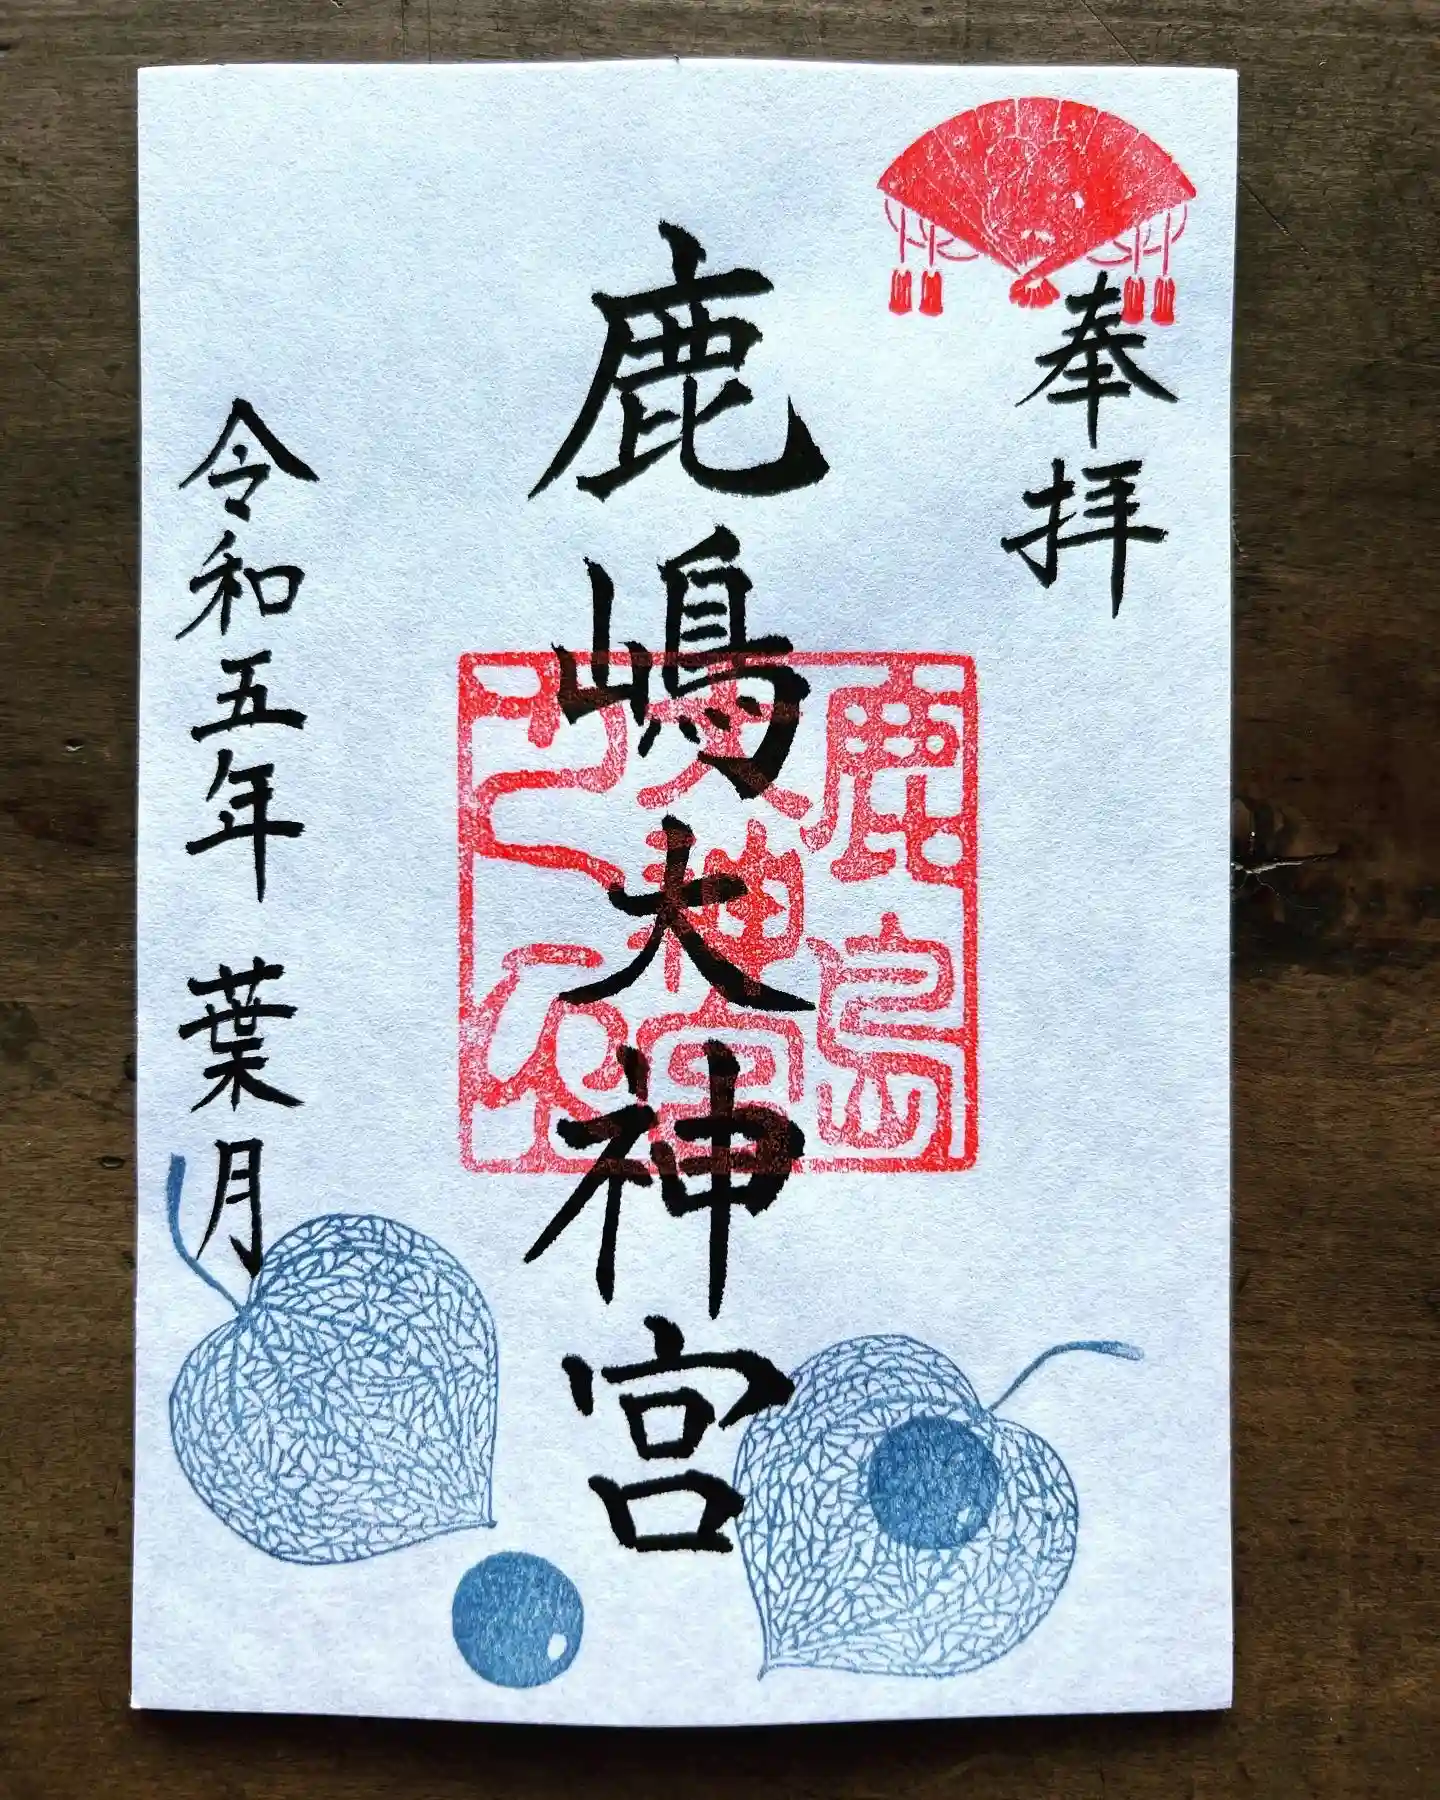 奉拝
鹿嶋大神宮
鹿島
大神宮
之印
令和五年 葉月